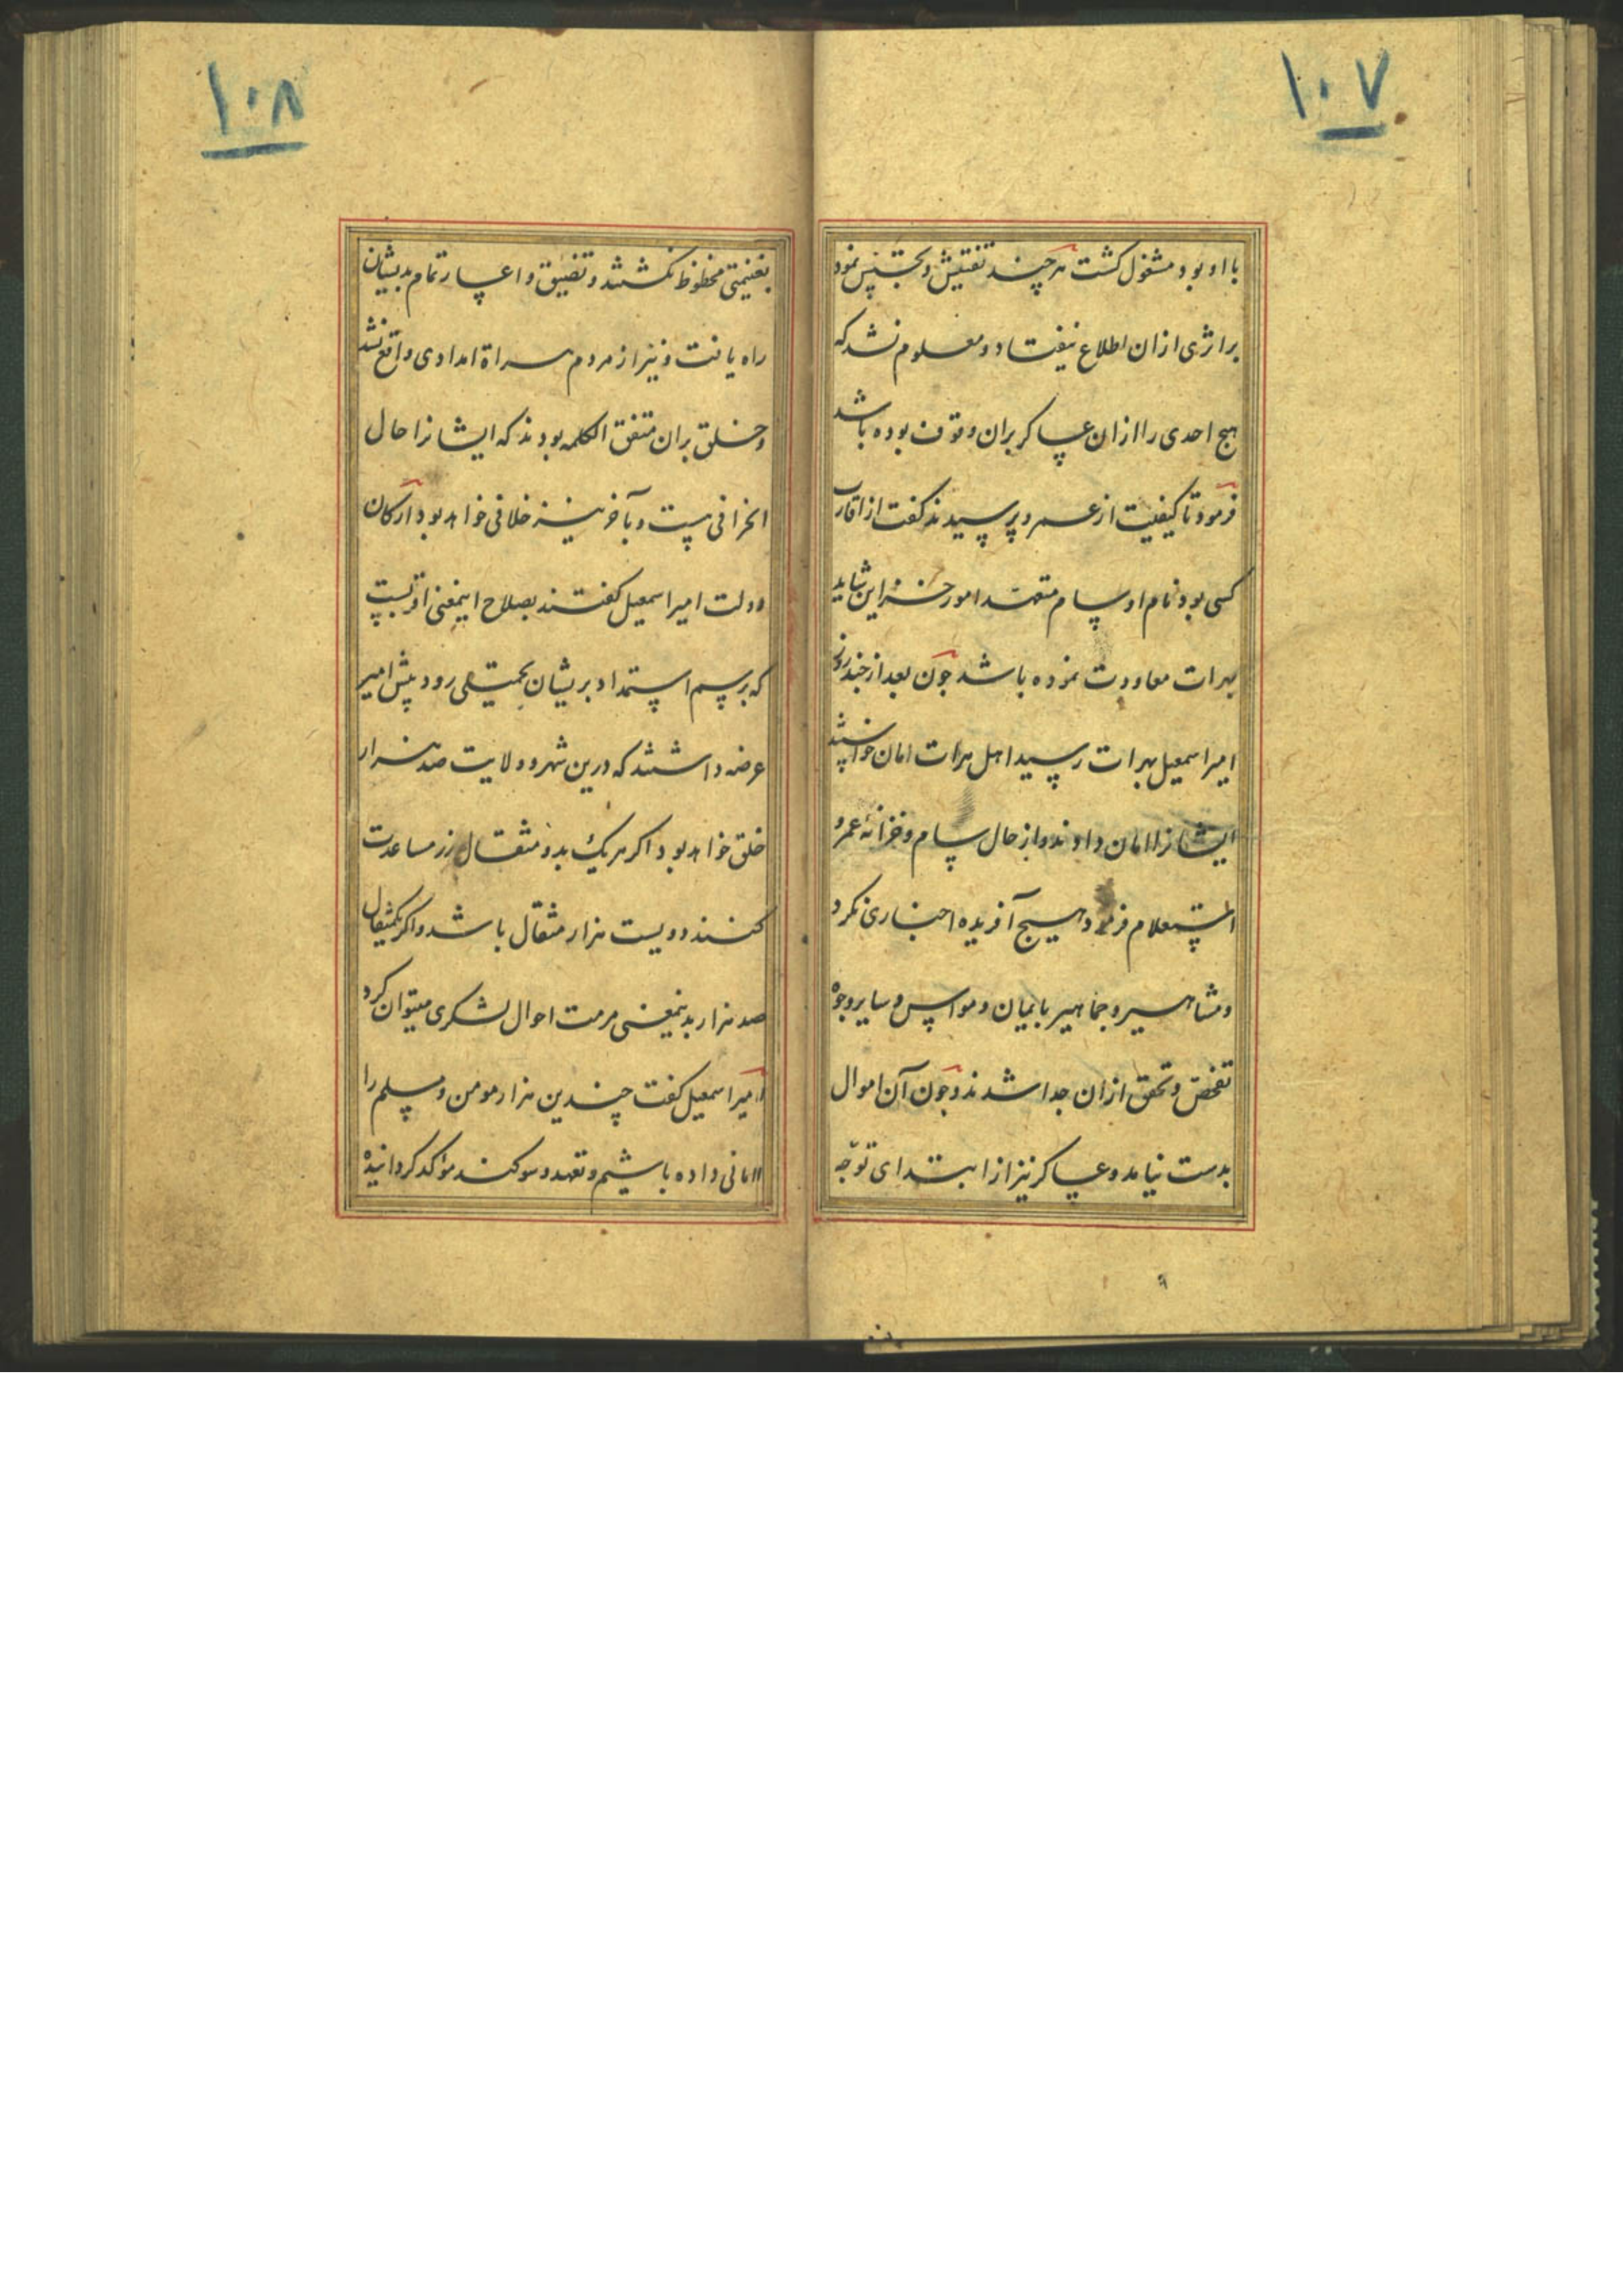 ۱۰۷
با او بود مشغول کشت هرچند تفتیش و تجسس نمود
بر اثری ازان اطلاع نیفتاد و معلوم نشد که
هیچ احدی را ازان عساکر بران وقوف بوده باشد
فرمود تا کیفیت از عمرو پرسیدند کفت از اقارب
کسی بود نام او سام متعهد امور خزاین شاید
بهرات معاودت نموده باشد چون بعد از چند روز
امیر اسمعیل بهرات رسید اهل هرات امان خواستند
ایشانرا امان دادند و از حال سام و خزانه عمرو
استعلام فرمود هیچ آفریده اخباری نکرد
و مشاهیر و جماهیر بایمان و مواسیس و سایر وجوه
تفحص و تحقق ازان جدا شدند و چون آن اموال
بدست نیامد و عساکر نیز از ابتدای توجه
۱۰۸
بغنیمتی محظوظ نکشتند و تضییق و اعسار تمام بدیشان
راه یافت و نیز از مردم هراة امدادی واقع نشد
و خلق بران متفق الکلمه بودند که ایشانرا حال
انحرافی هست و بآخر هر آینه خلافی خواهد بود ارکان
دولت امیر اسمعیل کفتند بصلاح اینمعنی اقربست
که برسم استمداد بریشان تحمیلی رود پیش امیر
عرضه داشتند که درین شهر و ولایت صد هزار
خلق خواهد بود اکر هر یک بدو مثقال زر مساعدت
کنند دویست هزار مثقال باشد و اکر بیکمثقال
صد هزار بدینمعنی مرمت احوال لشکری میتوان کرد
امیر اسمعیل کفت چندین هزار مومن و مسلم را
امانی داده باشیم و تعهد و سوکند موکد کردانیده